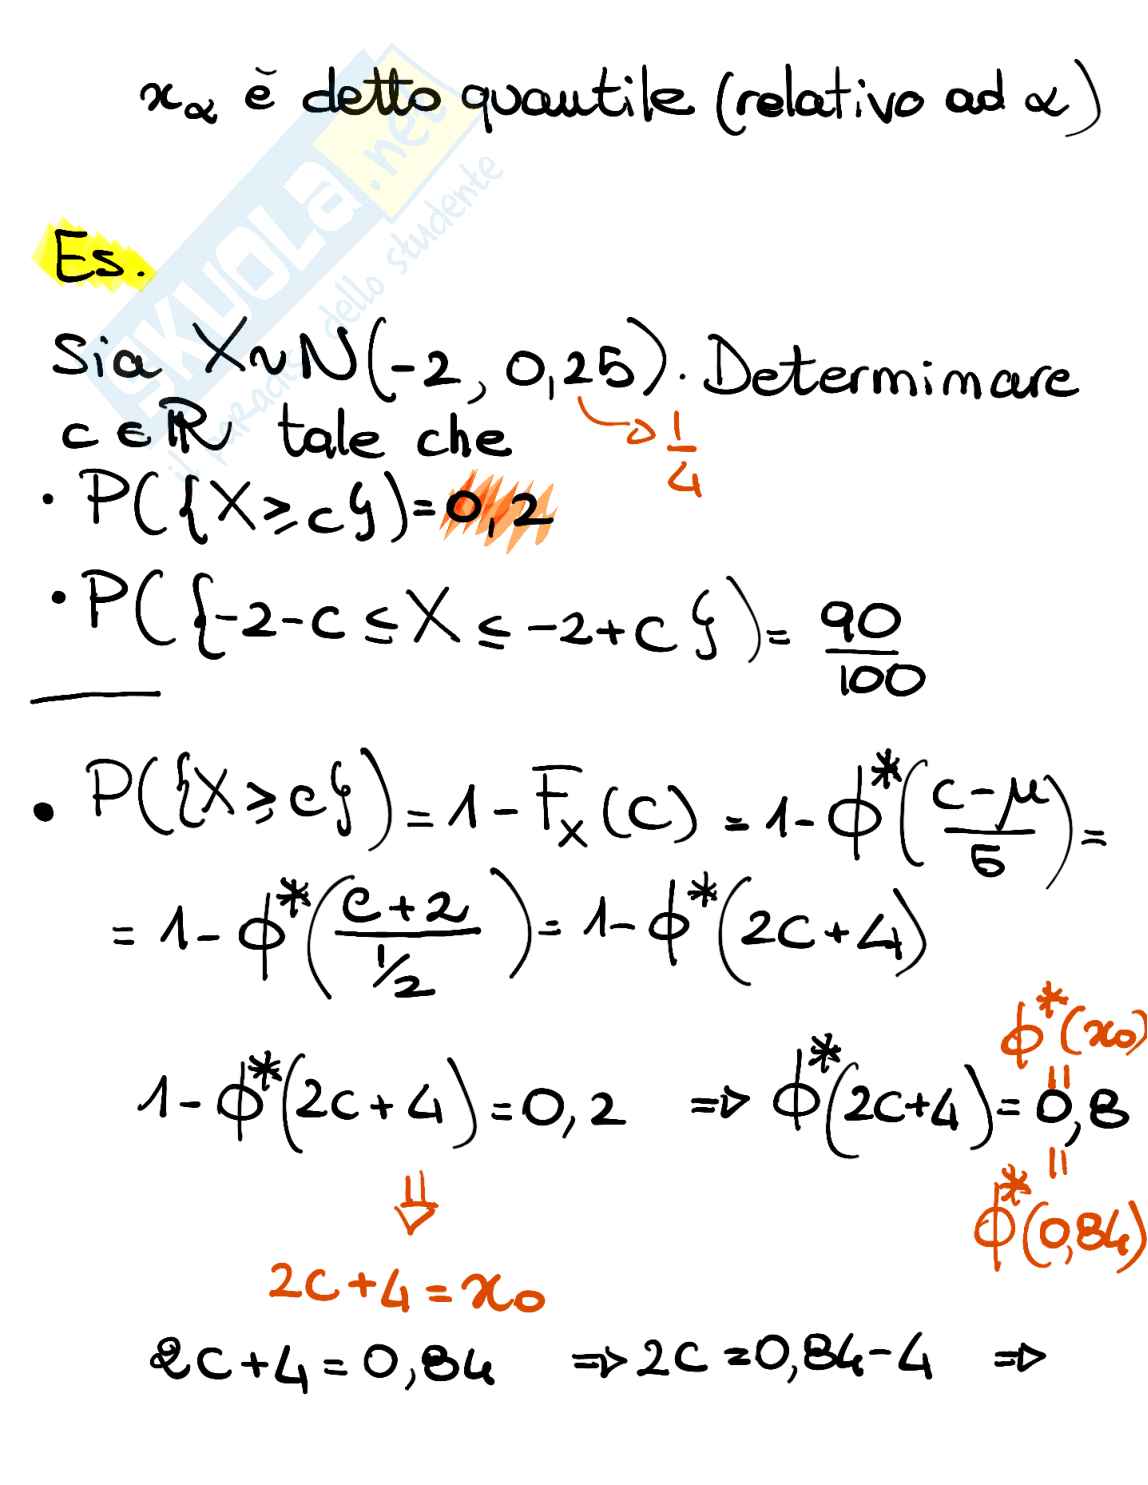 x_α è detto quantile (relativo ad α)
SKUOLA.net
il paradiso dello studente
Es.
Sia X~N(-2, 0,25). Determinare
→ 1/4
c ∈ ℝ tale che
• P({X ≥ c}) = 0,2
• P({-2-c ≤ X ≤ -2+c}) = 90/100
• P({X ≥ c}) = 1 - F_X(c) = 1 - ϕ*((c-μ)/σ) =
= 1 - ϕ*((c+2)/(1/2)) = 1 - ϕ*(2c+4)
ϕ*(x₀)
=
1 - ϕ*(2c+4) = 0,2 ⇒ ϕ*(2c+4) = 0,8
=
⇓ ϕ*(0,84)
2c+4 = x₀
2c+4 = 0,84 ⇒ 2c = 0,84-4 ⇒